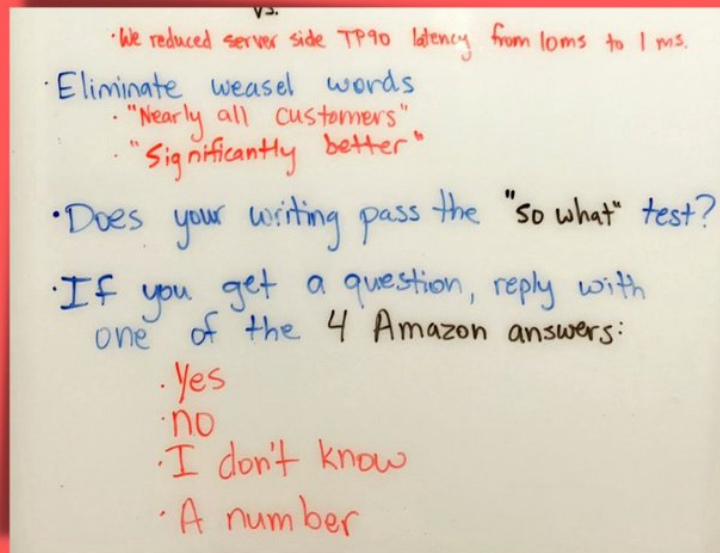 vs.
· We reduced server side TP90 latency from 10ms to 1 ms.
· Eliminate weasel words
· "Nearly all customers"
· "Significantly better"
· Does your writing pass the "so what" test?
· If you get a question, reply with
one of the 4 Amazon answers:
· Yes
· no
· I don't know
· A number